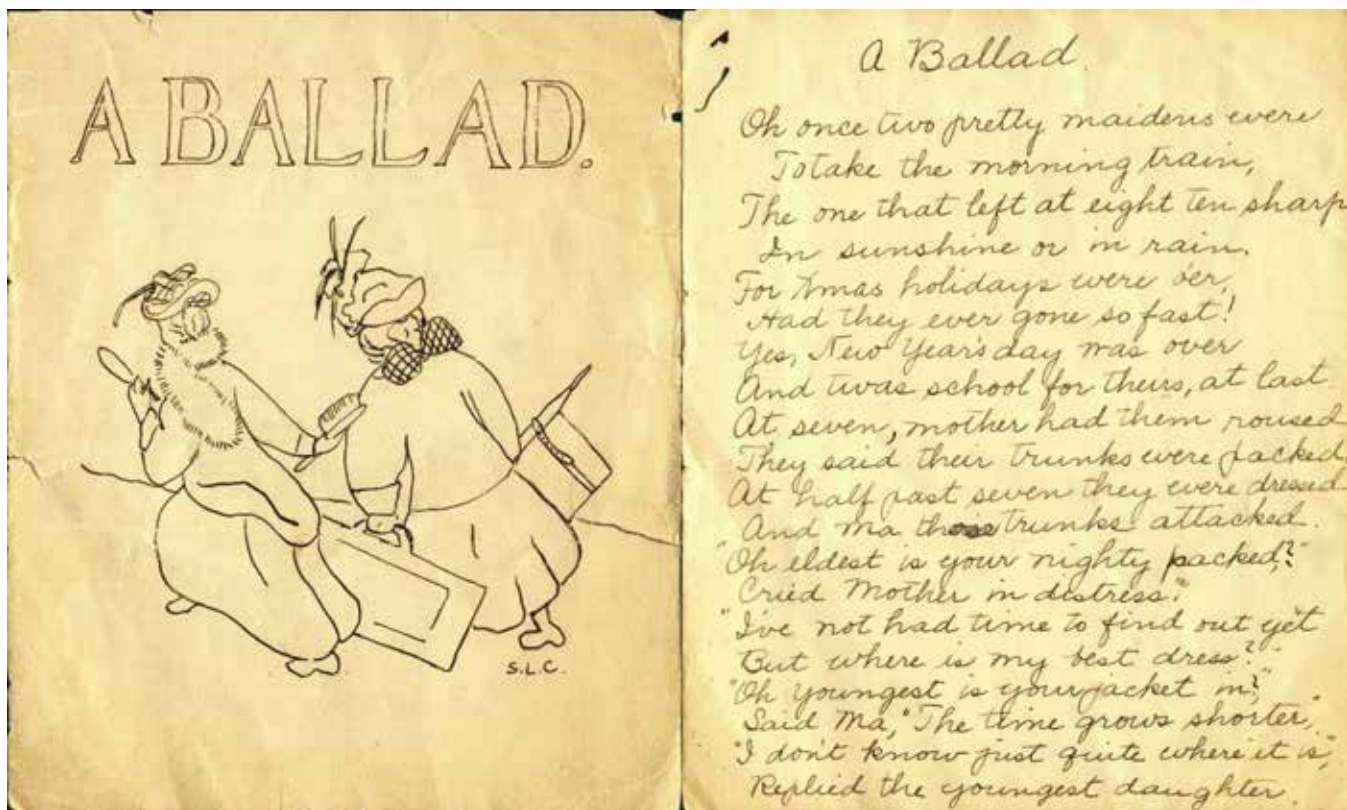 A BALLAD.
S.L.C.
A Ballad
Oh once two pretty maidens were
To take the morning train,
The one that left at eight ten sharp
In sunshine or in rain.
For Xmas holidays were o'er,
Had they ever gone so fast!
Yes, New Year's day was over
And twas school for theirs, at last
At seven, mother had them roused
They said their trunks were packed,
At half past seven they were dressed
And Ma those trunks attacked.
"Oh eldest is your nighty packed,?"
Cried Mother in distress."
"I've not had time to find out yet
But where is my best dress?"
"Oh youngest is your jacket in?"
Said Ma, "The time grows shorter,"
"I don't know just quite where it is",
Replied the youngest daughter.